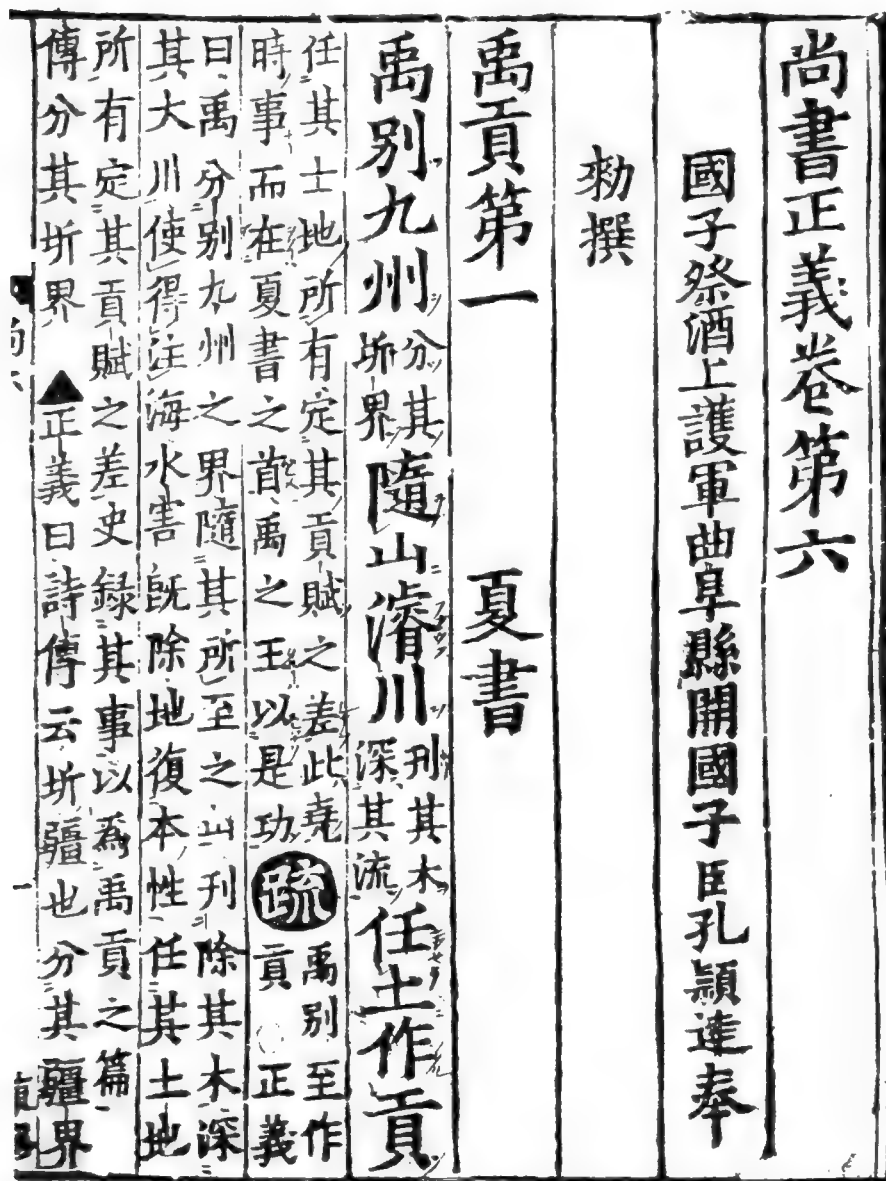 尚書正義卷第六
國子祭酒上護軍曲阜縣開國子臣孔穎達奉
勑撰
禹貢第一 夏書
禹別九州分其圻界隨山濬川刊其木深其流任土作貢
任其土地所有定其貢賦之差此堯
時事而在夏書之首禹之王以是功疏禹別至作貢 正義
曰禹分別九州之界隨其所至之山刊除其木深
其大川使得注海水害既除地復本性任其土地
所有定其貢賦之差史錄其事以為禹貢之篇
傳分其圻界▲正義曰詩傳云圻疆也分其疆界